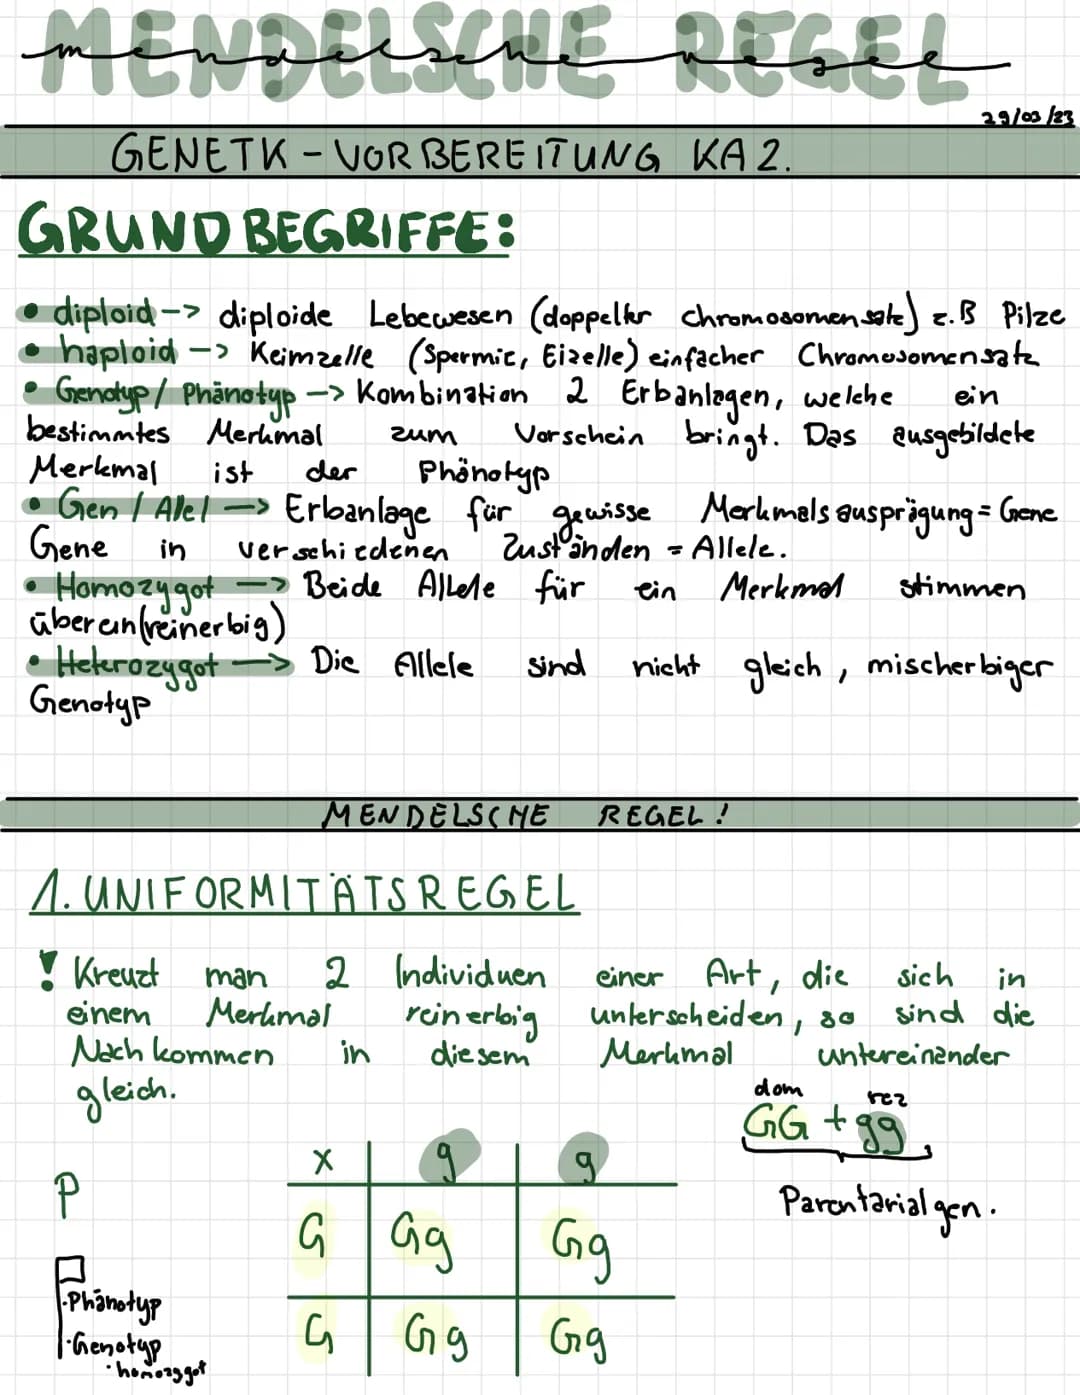 MENDELSCHE REGEL
mendelsche regel
29/03/23
GENETK - VORBEREITUNG KA 2.
GRUNDBEGRIFFE:
• diploid -> diploide Lebewesen (doppelter Chromosomensatz) z.B Pilze
• haploid -> Keimzelle (Spermie, Eizelle) einfacher Chromosomensatz
• Genotyp / Phänotyp -> Kombination 2 Erbanlagen, welche ein
bestimmtes Merkmal zum Vorschein bringt. Das ausgebildete
Merkmal ist der Phänotyp
• Gen / Allel -> Erbanlage für gewisse Merkmalsausprägung = Gene
Gene in verschiedenen Zuständen = Allele.
• Homozygot -> Beide Allele für ein Merkmal stimmen
überein (reinerbig)
• Heterozygot -> Die Allele sind nicht gleich, mischerbiger
Genotyp
MENDELSCHE REGEL!
1. UNIFORMITÄTSREGEL
! Kreuzt man 2 Individuen einer Art, die sich in
einem Merkmal reinerbig unterscheiden, so sind die
Nachkommen in diesem Merkmal untereinander
gleich.
dom rez
GG + gg
Parentarialgen.
P
x g g
G Gg Gg
G Gg Gg
·Phänotyp
·Genotyp
·homozygot